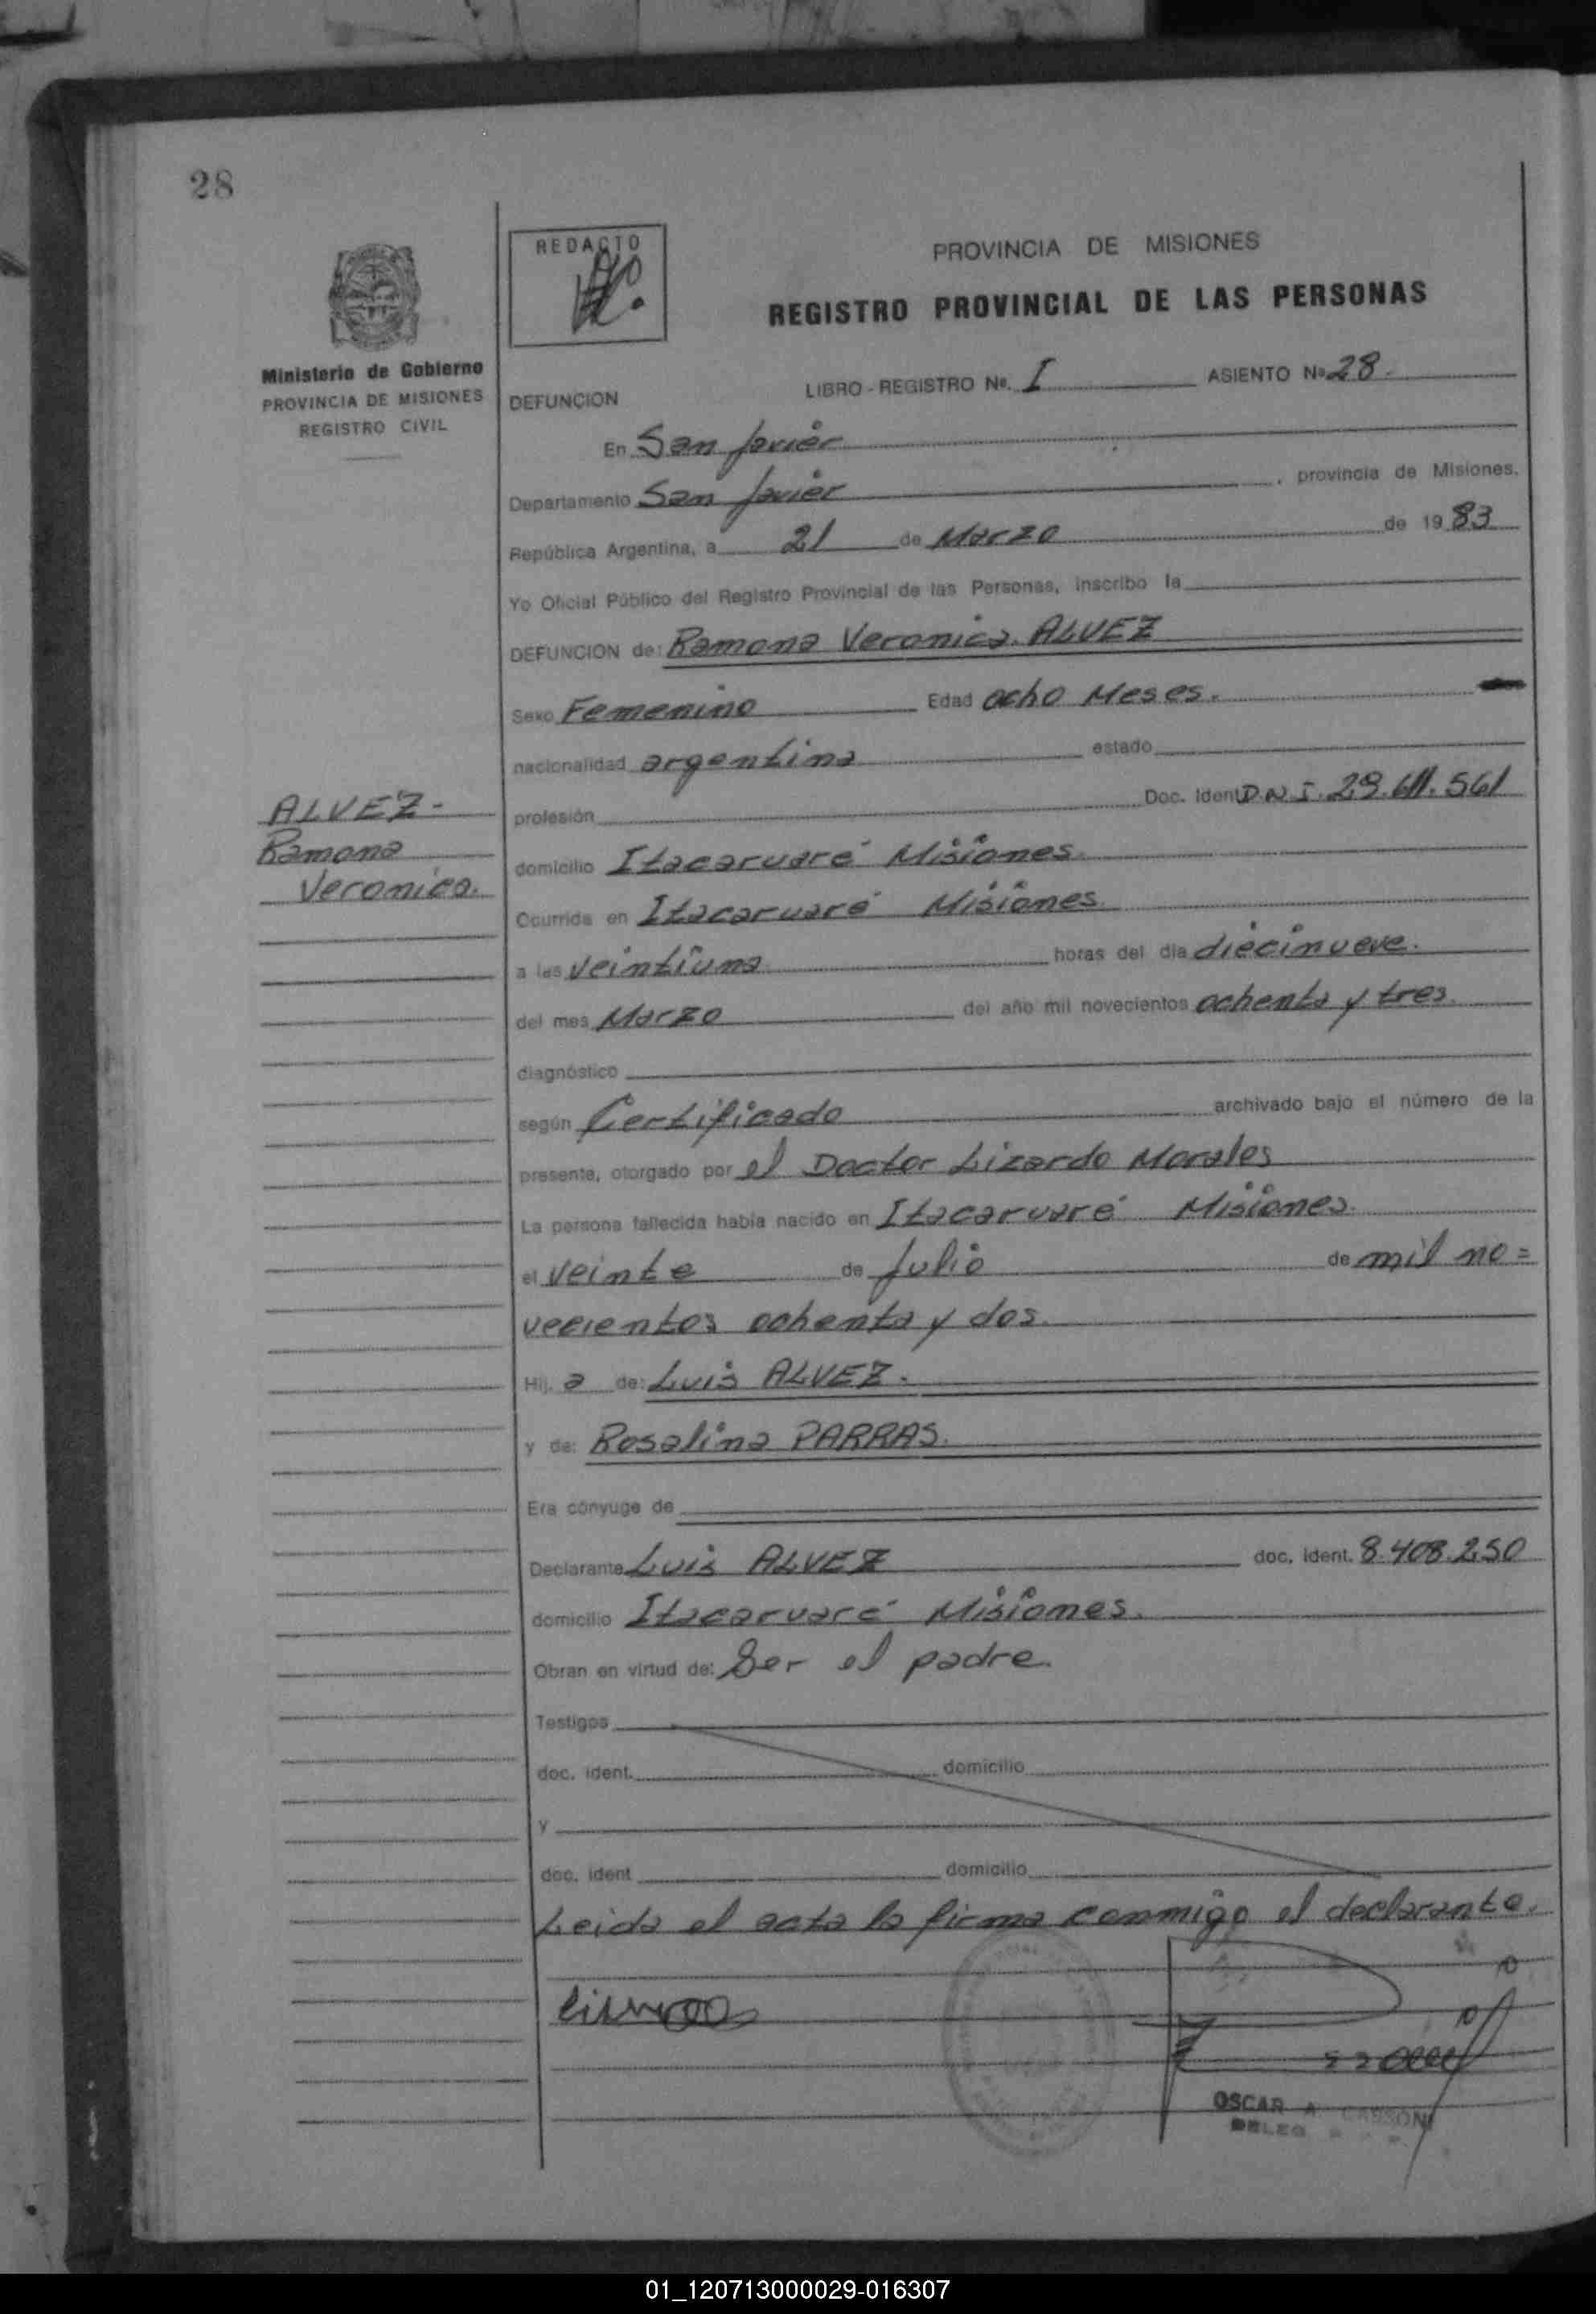 28
REDACTO
PROVINCIA DE MISIONES
REGISTRO PROVINCIAL DE LAS PERSONAS
Ministerio de Gobierno
PROVINCIA DE MISIONES
REGISTRO CIVIL
DEFUNCION LIBRO - REGISTRO No. I ASIENTO No 28.
En San Javier
Departamento San Javier, provincia de Misiones.
República Argentina, a 21 de Marzo de 1983
Yo Oficial Público del Registro Provincial de las Personas, inscribo la
DEFUNCION de: Ramona Veronica. ALVEZ
Sexo Femenino Edad ocho Meses.
nacionalidad argentina estado
profesión Doc. Ident D.N.I. 29.611.561
ALVEZ-
Ramona
Veronica.
domicilio Itacaruaré Misiones.
Ocurrida en Itacaruaré Misiones.
a las veintiuna horas del día diecinueve.
del mes Marzo del año mil novecientos ochenta y tres.
diagnóstico
según Certificado archivado bajo el número de la
presente, otorgado por el Doctor Lizardo Morales
La persona fallecida había nacido en Itacaruaré Misiones.
el veinte de Julio de mil no=
vecientos ochenta y dos.
Hij. a de: Luis ALVEZ.
y de: Rosalina PARRAS.
Era cónyuge de
Declarante Luis ALVEZ doc. ident. 8.408.250
domicilio Itacaruaré Misiones.
Obran en virtud de: Ser el padre.
Testigos
doc. ident. domicilio
y
doc. ident domicilio
Leida el acta la firma conmigo el declarante.
OSCAR A.
DELEG
01_120713000029-016307